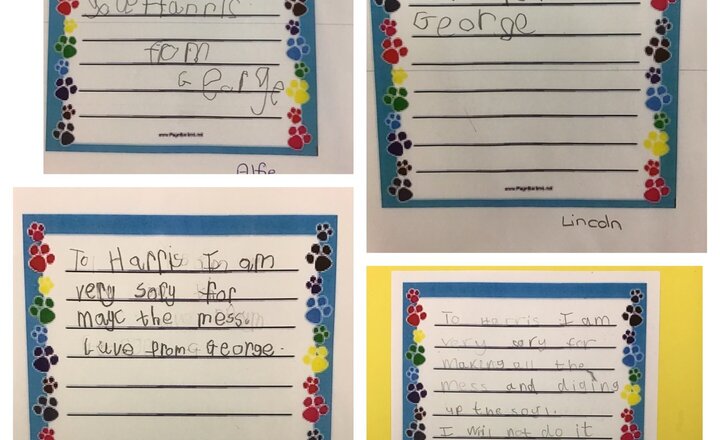 Harris
fom
George
www.PageBorders.net
Alfie
George
www.PageBorders.net
Lincoln
To Harris I am
very sory for
mayc the mess.
Luve from George.
To Harris I am
very sory for
making all the
mess and diging
up the soyl.
I will not do it